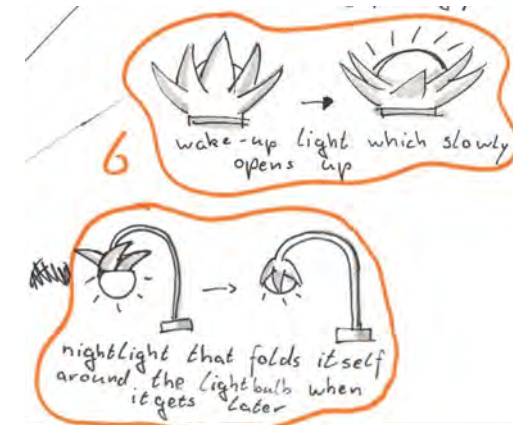 6
wake-up light which slowly
opens up
nightlight that folds itself
around the lightbulb when
it gets later